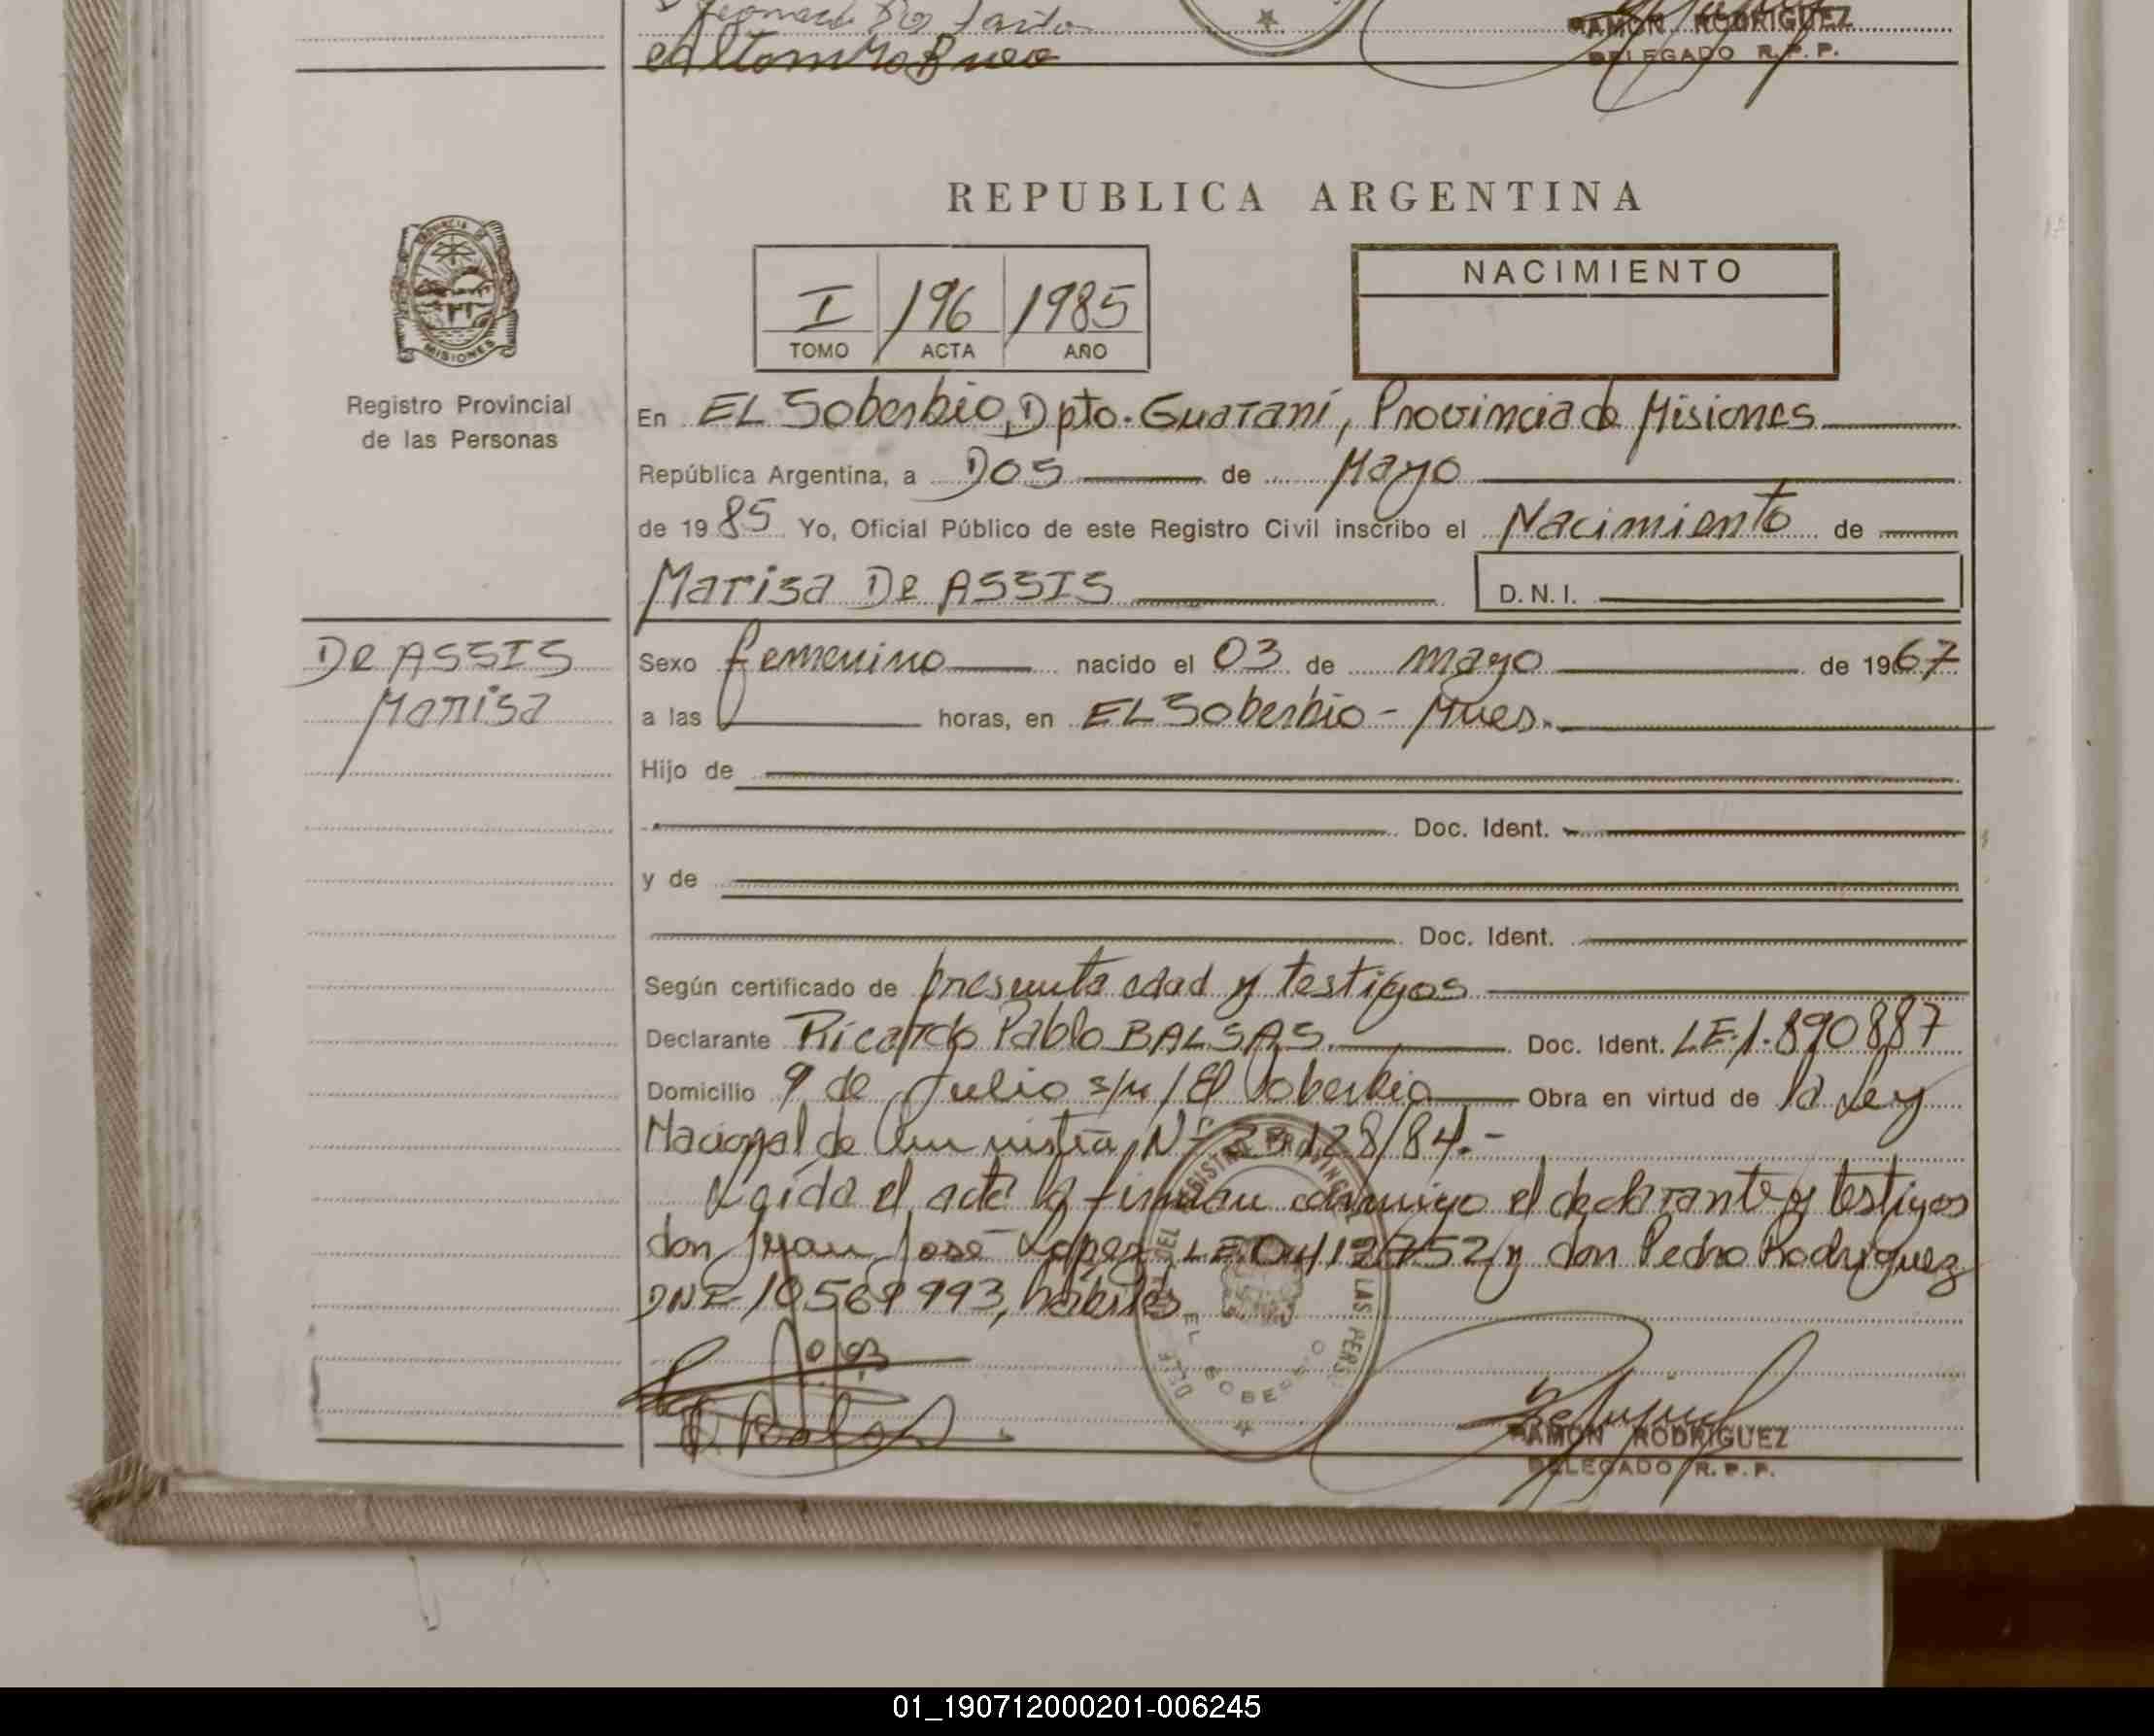 RAMON RODRIGUEZ
DELEGADO R.P.P.
REPUBLICA ARGENTINA
PROVINCIA DE
MISIONES
Registro Provincial
de las Personas
I /196 /1985
TOMO ACTA AÑO
NACIMIENTO
En EL Soberbio, Dpto. Guaraní, Provincia de Misiones
República Argentina, a DOS de Mayo
de 1985 Yo, Oficial Público de este Registro Civil inscribo el Nacimiento de
Marisa De ASSIS D.N.I.
De ASSIS
Marisa
Sexo femenino nacido el 03 de mayo de 1967
a las horas, en EL Soberbio - Mnes.
Hijo de
Doc. Ident.
y de
Doc. Ident.
Según certificado de presunta edad y testigos
Declarante Ricardo Pablo BALSAS. Doc. Ident. LE.1.890887
Domicilio 9 de Julio s/n / El Soberbio Obra en virtud de la Ley
Nacional de Amnistía, Nº 23128/84.-
Leída el acta la firman conmigo el declarante y testigos
don Juan José Lopez, LE 0412752 y don Pedro Rodriguez
DNI 10569993, habiles
REGISTRO PROVINCIAL DE LAS PERS
EL SOBERBIO
RAMON RODRIGUEZ
DELEGADO R.P.P.
01_190712000201-006245